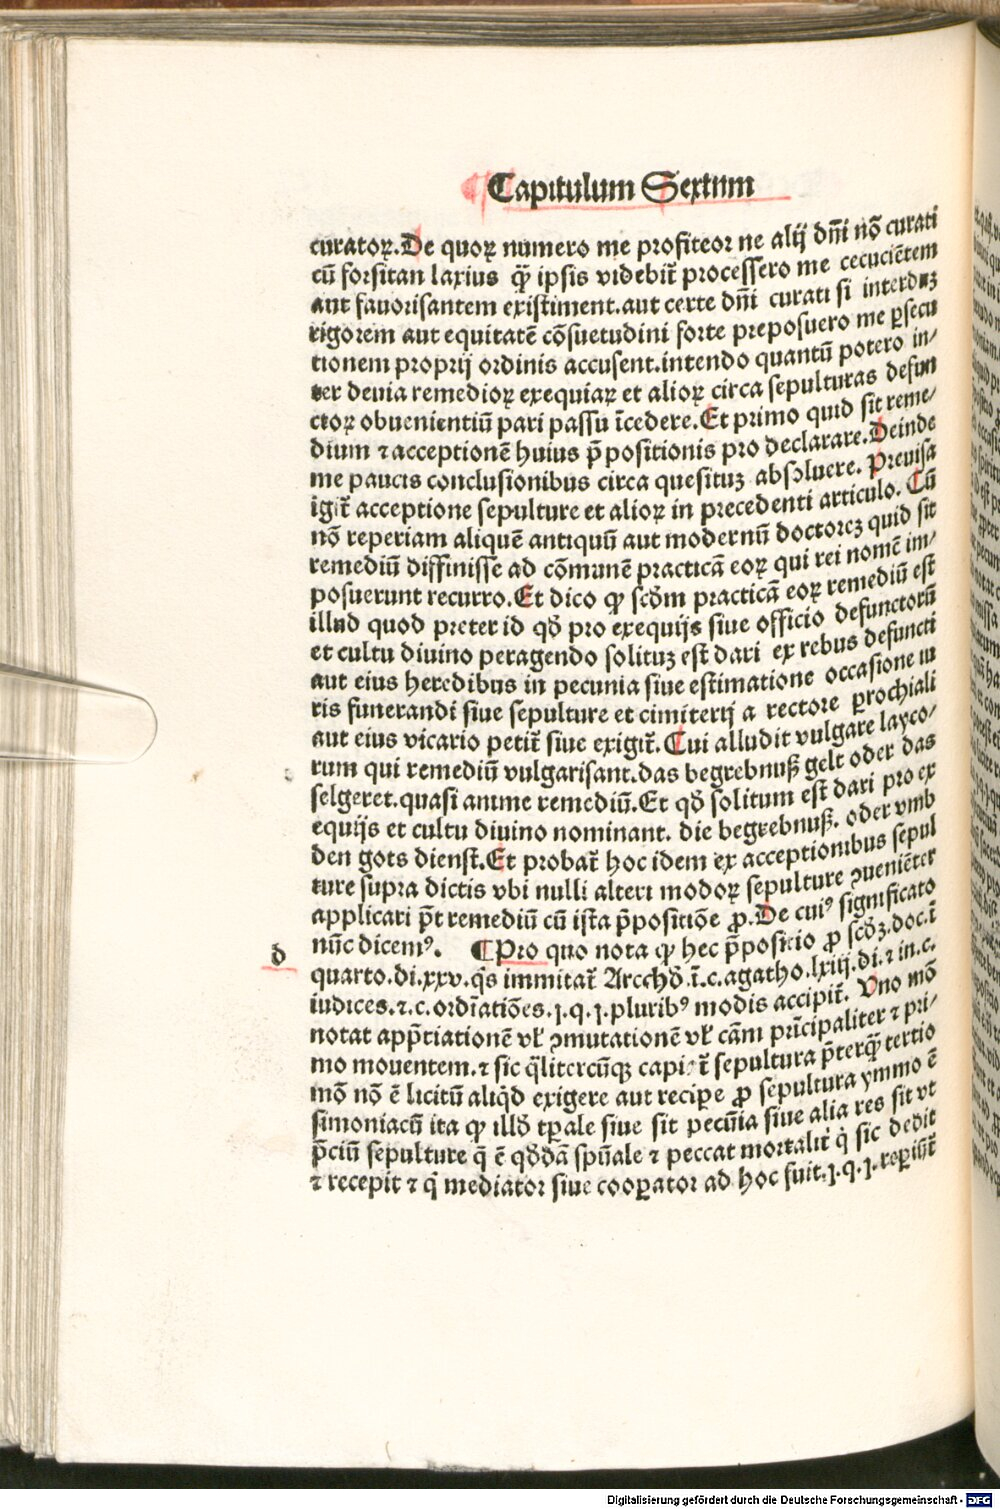 Capitulum Sextum
curatoꝝ. De quoꝝ numero me profiteor ne alij dn̄i nō curati
cū forsitan laxius qꝫ̄ ipsis videbit̄ processero me cecuciētem
aut fauorisantem existiment. aut certe dn̄i curati si interduꝫ
rigorem aut equitatē cōsuetudini forte preposuero me ꝑsecu
tionem proprij ordinis accusent. intendo quantū potero in-
ter deuia remedioꝝ exequiaꝝ et alioꝝ circa sepulturas defun
ctoꝝ obuenientiū pari passu īcedere. Et primo quid sit reme-
dium ⁊ acceptionē huius p̄positionis pro declarare. Deinde
me paucis conclusionibus circa quesituꝫ absoluere. Preuisa
igit̄ acceptione sepulture et alioꝝ in precedenti articulo. Cū
nō reperiam aliquē antiquū aut modernū doctoreꝫ quid sit
remediū diffinisse ad cōmunē practicā eoꝝ qui rei nomē im-
posuerunt recurro. Et dico ꝙ scd̄m practicā eoꝝ remediū est
illud quod preter id qd̄ pro exequijs siue officio defunctorū
et cultu diuino peragendo solituꝫ est dari ex rebus defuncti
aut eius heredibus in pecunia siue estimatione occasione iu
ris funerandi siue sepulture et cimiterij a rectore ꝑrochiali
aut eius vicario petit̄ siue exigit̄. Cui alludit vulgare layco-
rum qui remediū vulgarisant. das begrebnuß gelt oder das
selgeret. quasi anime remediū. Et qd̄ solitum est dari pro ex
equijs et cultu diuino nominant. die begrebnuß. oder vmb
den gots dienst. Et probat̄ hoc idem ex acceptionibus sepul
ture supra dictis vbi nulli alteri modoꝝ sepulture ꝯueniēter
applicari p̄t remediū cū ista p̄positiōe ꝓ. De cuiꝰ significato
nūc dicemꝰ. ¶ Pro quo nota ꝙ hec p̄positio ꝓ scd̄ꝫ. doc. ī
d
quarto. di. xxv. q̄s immitat̄ Arcchd̄. ī. c. agatho. lxiij. di. ⁊ in. c.
iudices. ⁊. c. ordīatiōes. j. q. j. pluribꝰ modis accipit̄. Uno mō
notat app̄tiationē vl̓ ꝯmutationē vl̓ cām prīcipaliter ⁊ pri-
mo mouentem. ⁊ sic q̄litercūqꝫ capiat̄ sepultura p̄terqꝫ̄ tertio
mō nō ē licitū aliq̄d exigere aut recipe ꝓ sepultura ymmo ē
simoniacū ita ꝙ illd̄ tp̄ale siue sit pecūia siue alia res sit vt
p̄ciū sepulture q̄ ē qd̄dā spūale ⁊ peccat mortalit̄ q̇ sic dedit
⁊ recepit ⁊ q̇ mediator siue cooꝑator ad hoc fuit. j. q. j. reꝑiūt̄
Digitalisierung gefördert durch die Deutsche Forschungsgemeinschaft - DFG